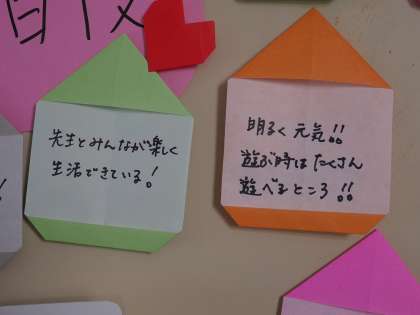 先生とみんなが楽しく
生活できている!
明るく 元気!!
遊ぶ時はたくさん
遊べるところ!!